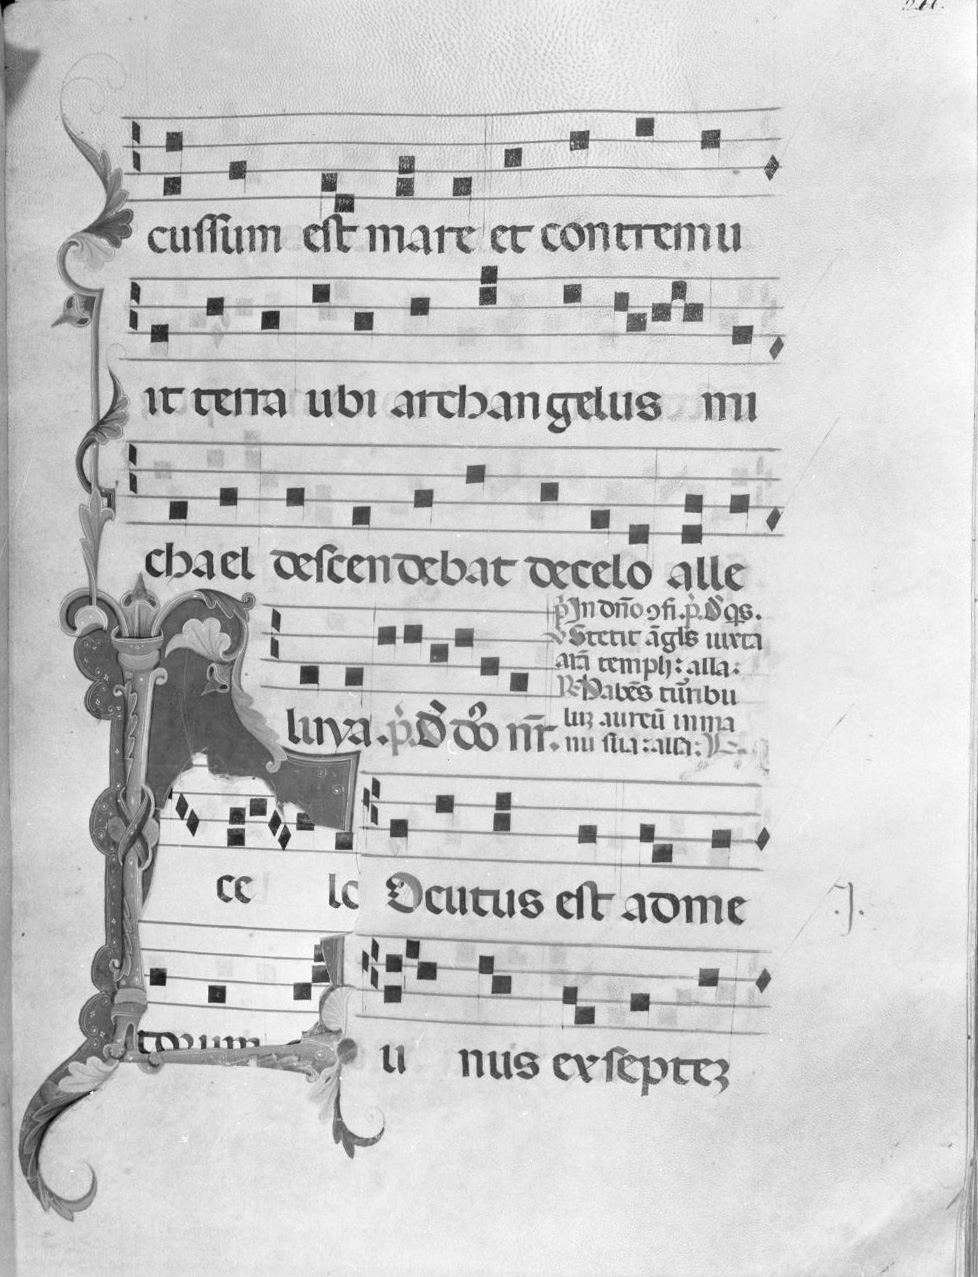 cussum est mare et contremu
it terra ubi archangelus mi
chael descendebat de celo alle
luya. p̄. D̄. d̄o n̄r.
p̄ In dn̄o ɔfi. p̄. D̄ q̄s.
Stetit āgl̄s iuxta
arā templi: alla:
R Dabēs turibu
luʒ aureū in ma
nu sua: alla:
Ocutus est ad me
ce lo
u nus ex septeʒ
torum